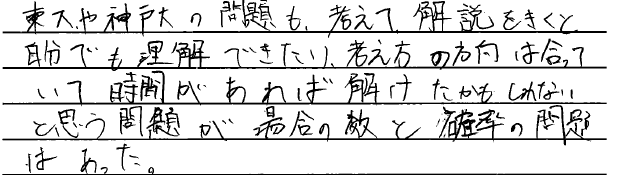 東大や神戸大の問題も、考えて解説をきくと
自分でも理解できたり、考え方の方向は合って
いて時間があれば解けたかもしれない
と思う問題が場合の数と確率の問題
はあった。